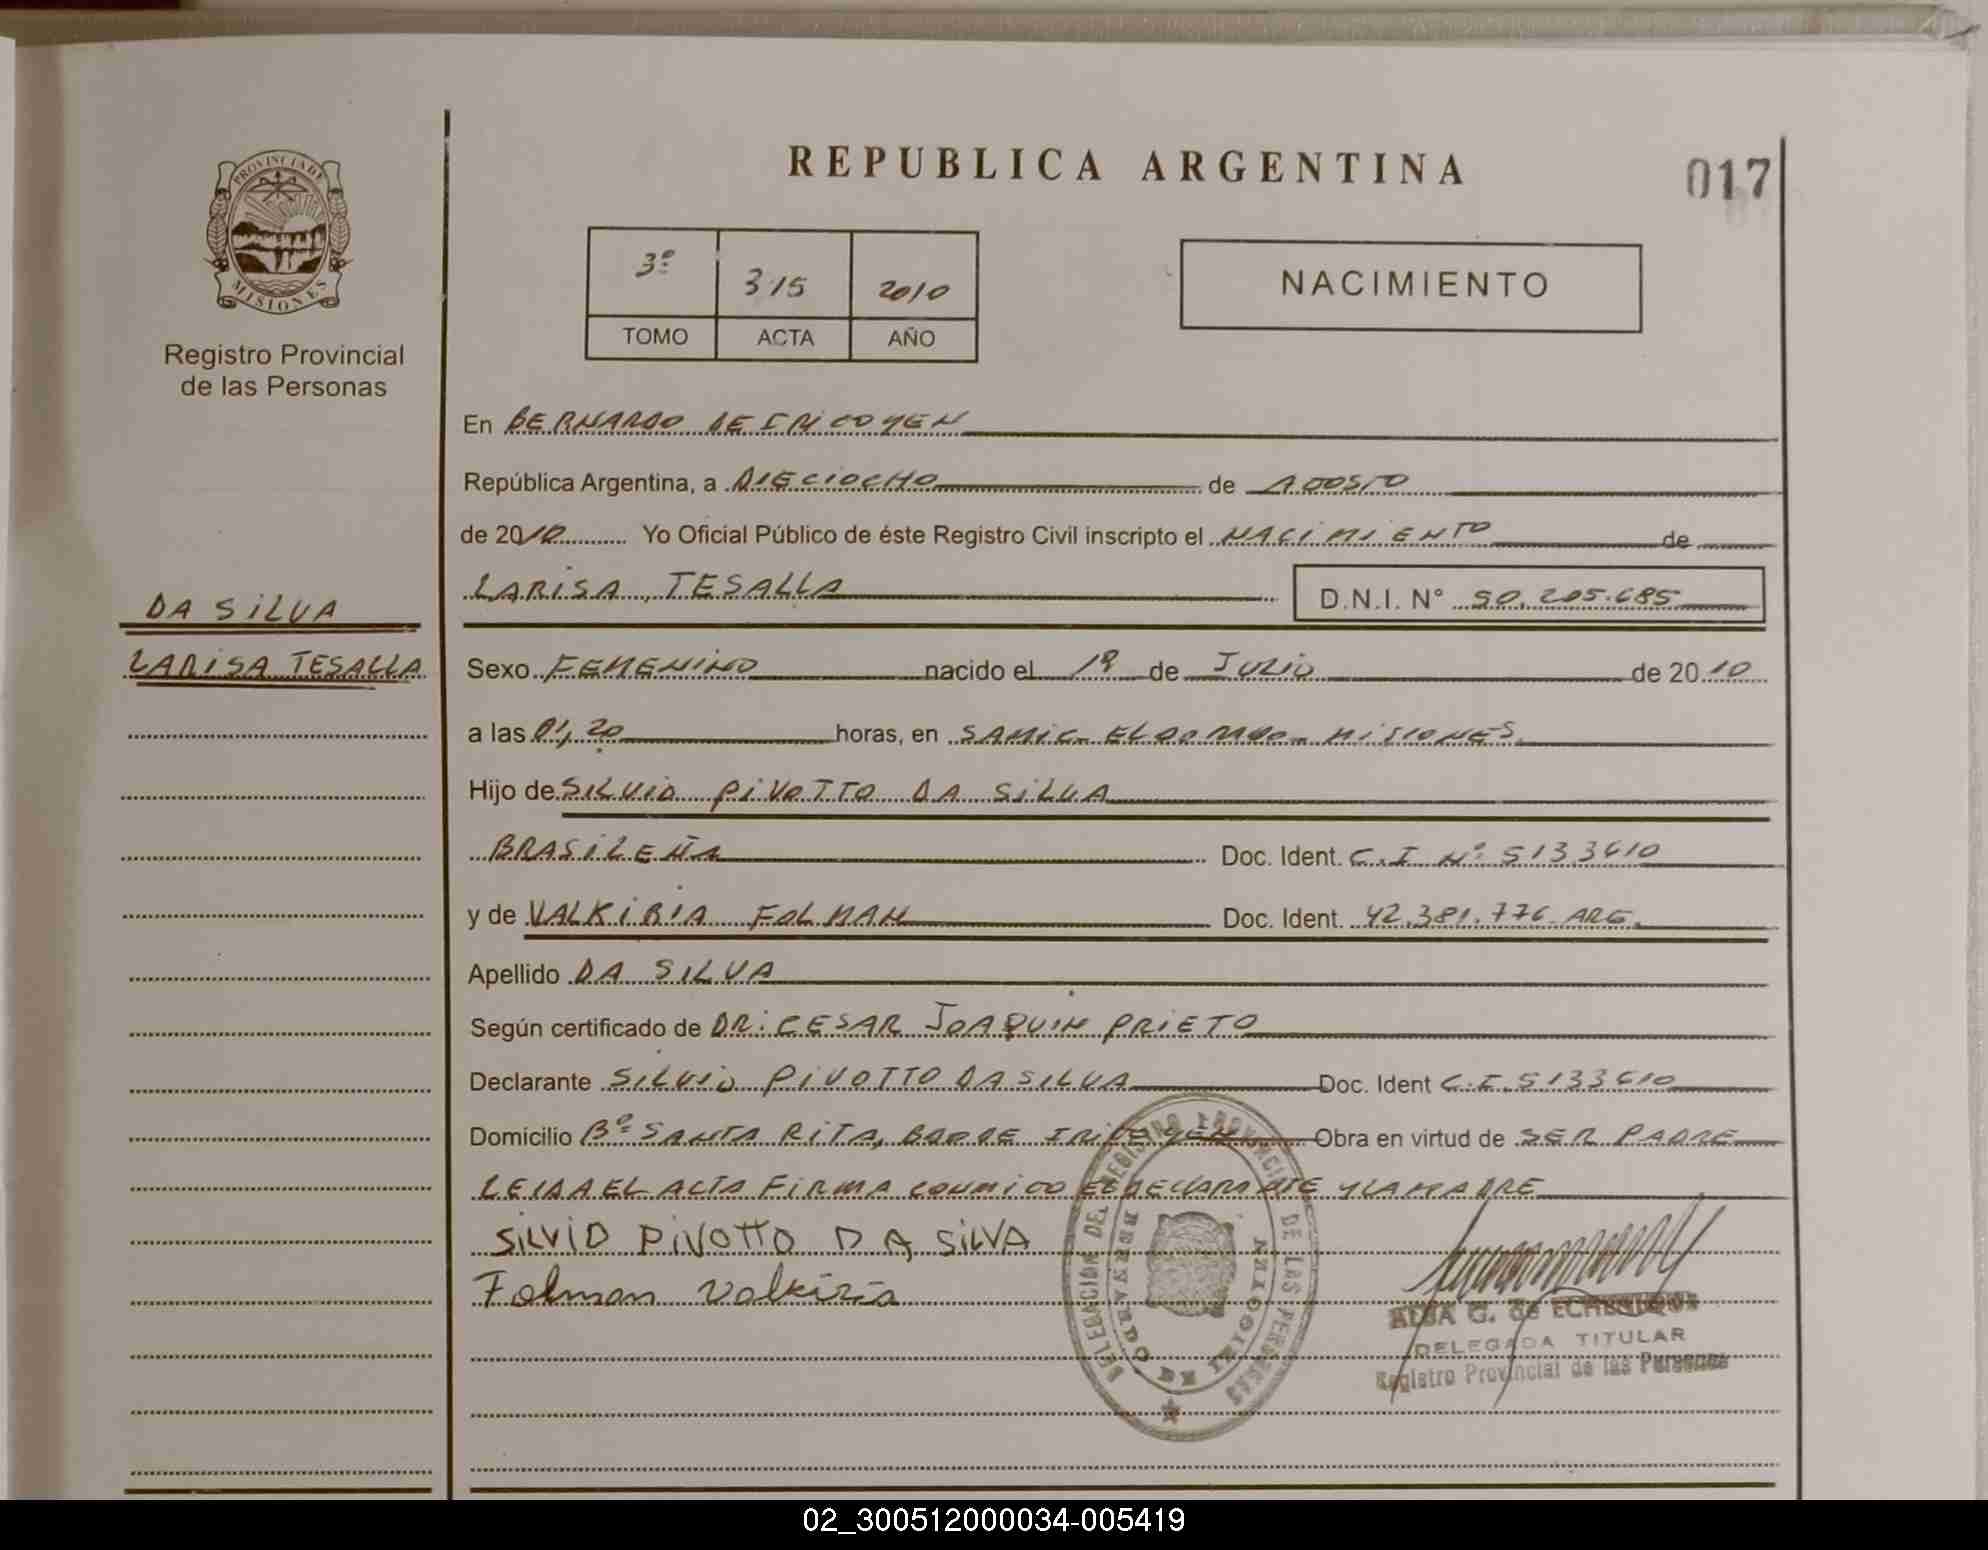 REPUBLICA ARGENTINA
017
PROVINCIA DE
MISIONES
Registro Provincial
de las Personas
3º 315 2010
TOMO ACTA AÑO
NACIMIENTO
En BERNARDO DE IRIGOYEN
República Argentina, a DIECIOCHO de AGOSTO
de 2010 Yo Oficial Público de éste Registro Civil inscripto el NACIMIENTO de
LARISA, TESALLA D.N.I. N° 50.205.685
DA SILVA
LARISA TESALLA
Sexo FEMENINO nacido el de JULIO de 2010
a las 01,20 horas, en SAMIC - ELDORADO - MISIONES
Hijo de SILVIO PIVOTTO DA SILVA
BRASILEÑA Doc. Ident. C.I Nº 5133610
y de VALKIRIA FOLMAN Doc. Ident. 42.381.776 ARG.
Apellido DA SILVA
Según certificado de DR: CESAR JOAQUIN PRIETO
Declarante SILVIO PIVOTTO DA SILVA Doc. Ident C.I. 5133610
Domicilio Bº SANTA RITA, BDODE IRIGOYEN Obra en virtud de SER PADRE
LEIDA EL ACTA FIRMA CONMIGO EL DECLARANTE Y LA MADRE
SILVIO PIVOTTO DA SILVA
Folman Valkiria
DELEGACION DEL REGISTRO PROVINCIAL DE LAS PERSONAS
BERNARDO DE IRIGOYEN
ALBA G. de ECHENIQUE
DELEGADA TITULAR
Registro Provincial de las Personas
02_300512000034-005419